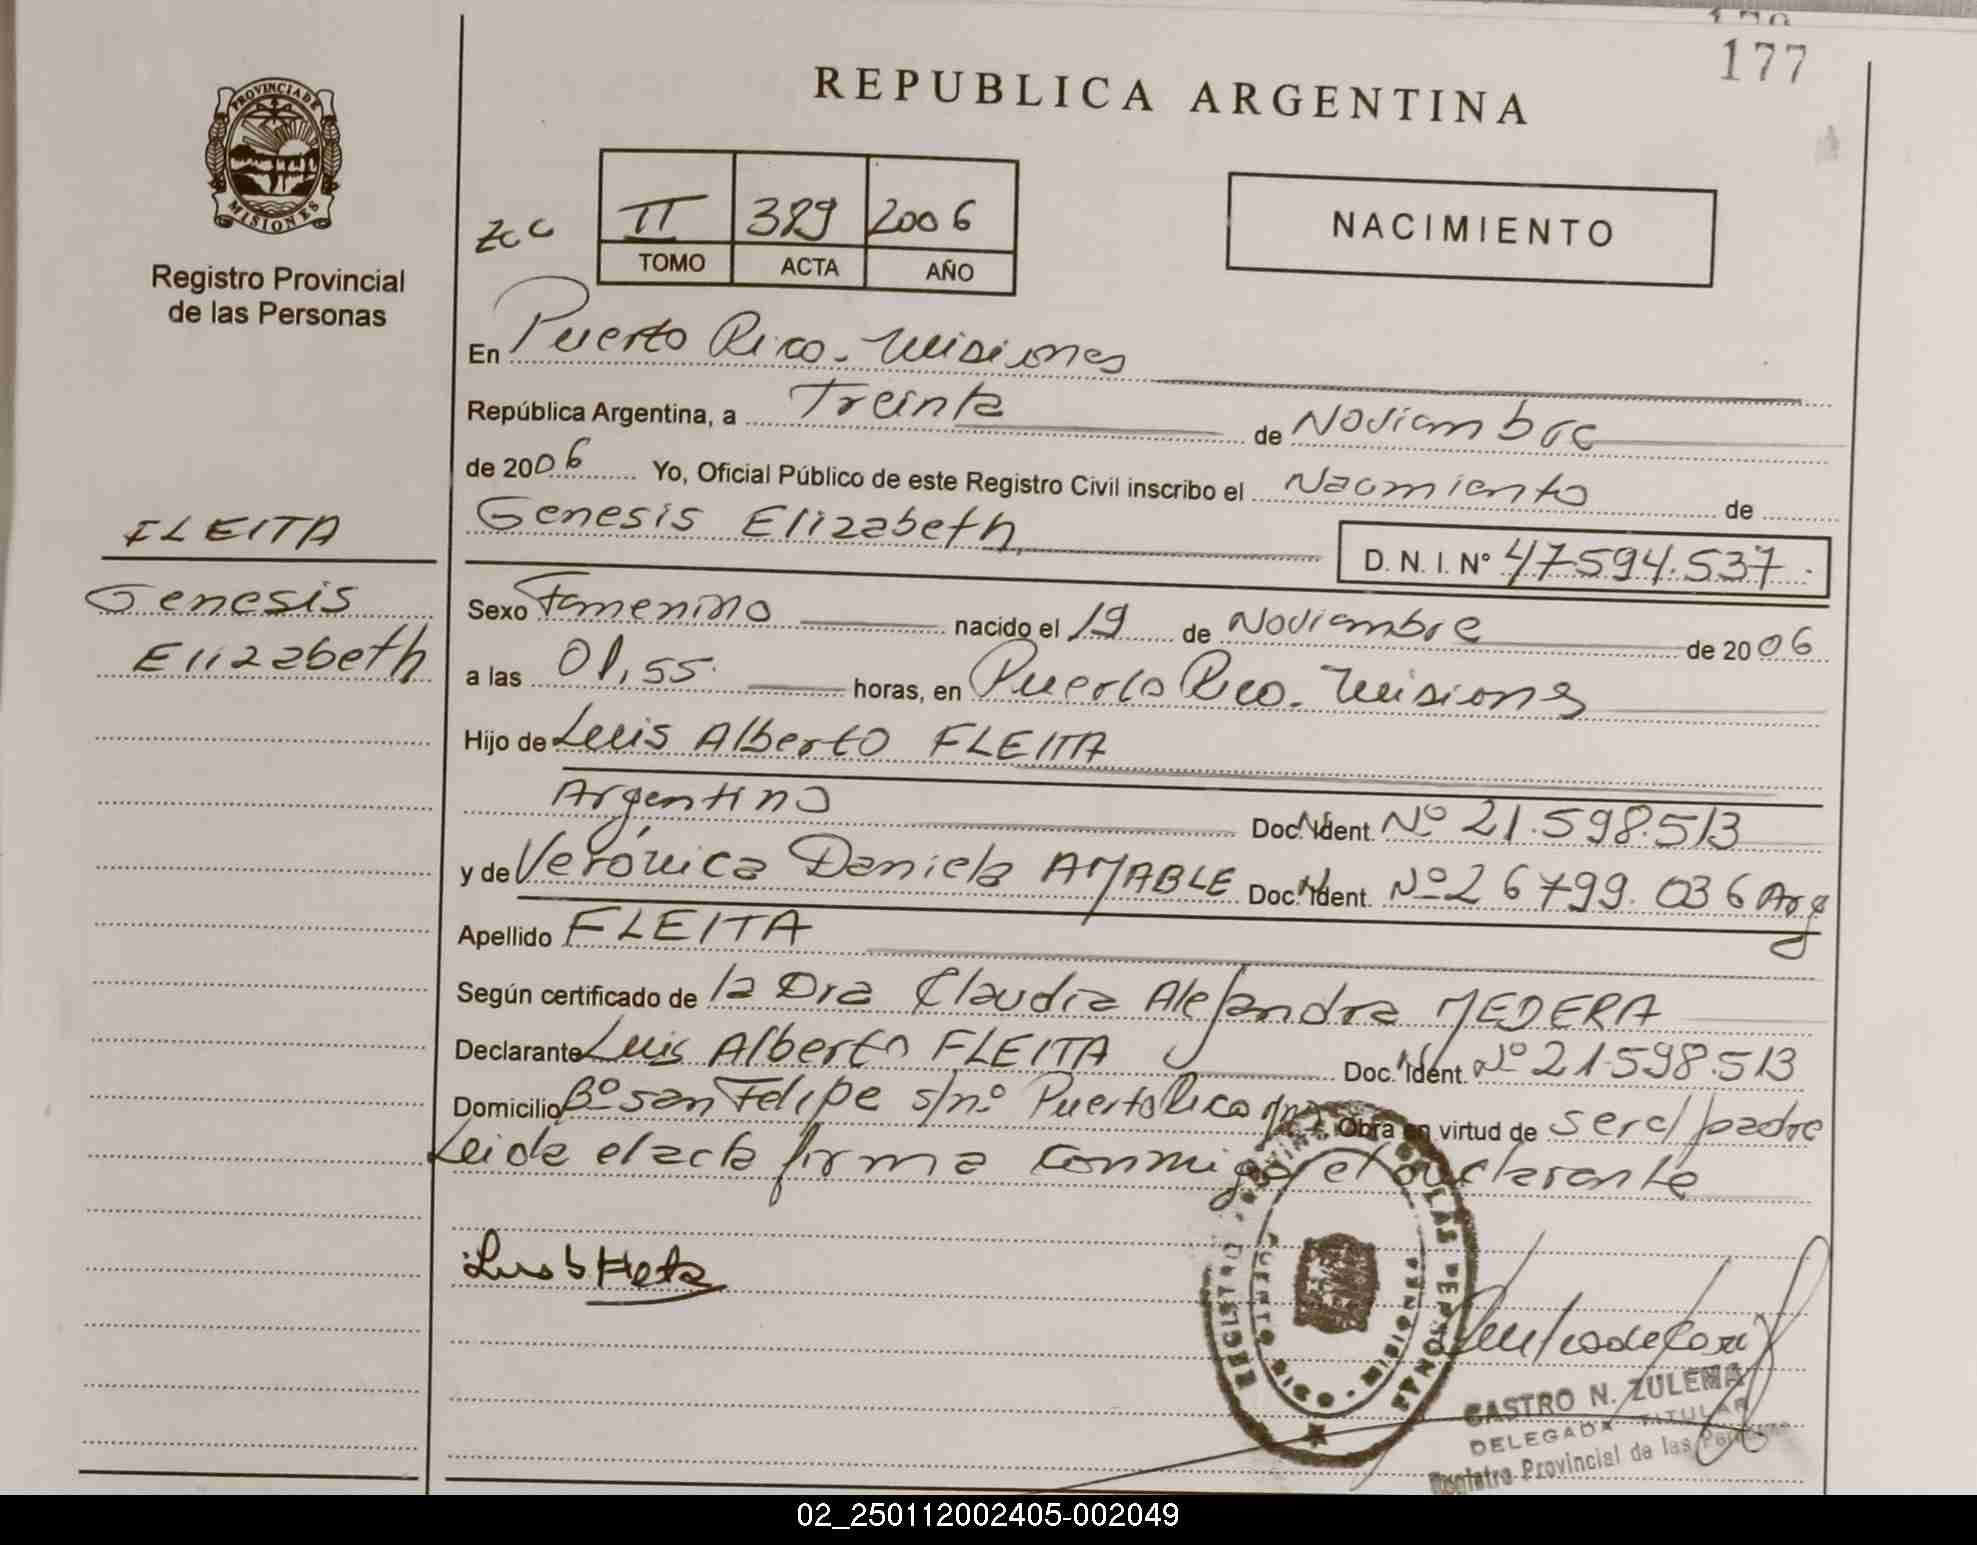 177
REPUBLICA ARGENTINA
PROVINCIA DE
MISIONES
Registro Provincial
de las Personas
II 389 2006
TOMO ACTA AÑO
NACIMIENTO
En Puerto Rico. Misiones
República Argentina, a Treinta de Noviembre
de 2006 Yo, Oficial Público de este Registro Civil inscribo el Nacimiento de
Genesis Elizabeth D. N. I. N° 47594.537.
FLEITA
Genesis
Elizabeth
Sexo Femenino nacido el 19 de Noviembre de 2006
a las 01,55. horas, en Puerto Rico. Misiones
Hijo de Luis Alberto FLEITA
Argentino Doc. Ident. Nº 21.598.513
y de Verónica Daniela AMABLE Doc. Ident. Nº 26799.036 Arg
Apellido FLEITA
Según certificado de la Dra Claudia Alejandra MEDERA
Declarante Luis Alberto FLEITA Doc. Ident. Nº 21.598.513
Domicilio Bº San Felipe s/nº Puerto Rico Obra en virtud de ser el padre
Leida el acta firma conmigo el declarante
REGISTRO PROVINCIAL DE LAS PERSONAS
MISIONES
CASTRO N. ZULEMA
DELEGADA TITULAR
Registro Provincial de las Personas
02_250112002405-002049